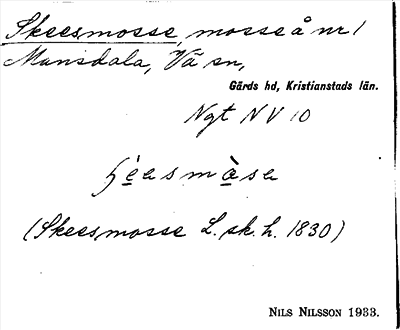 Skeesmosse, mosse å nr 1
Munsdala, Vä sn,
Gärds hd, Kristianstads län.
Ngt NV 10
(Skeesmosse L. sk. h. 1830)
NILS NILSSON 1933.